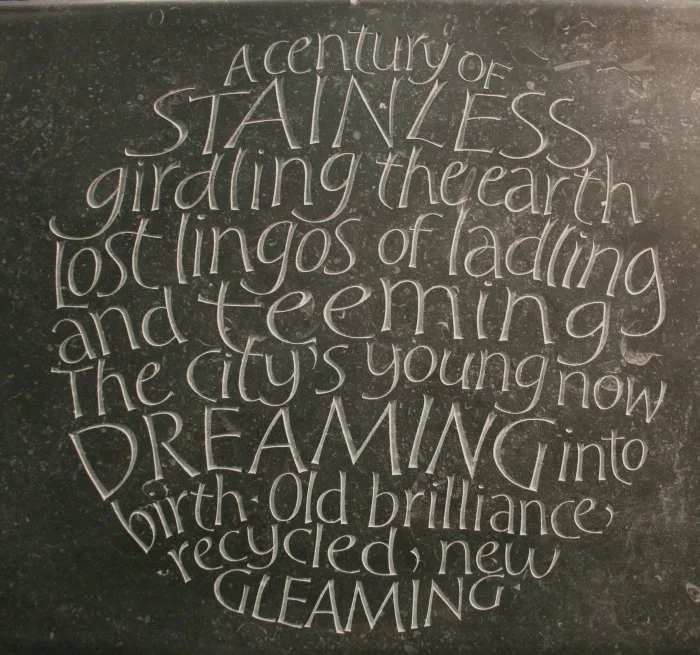 A century of
STAINLESS
girdling the earth
lost lingos of ladling
and teeming
The city's young now
DREAMING into
birth. Old brilliance,
recycled, new
GLEAMING